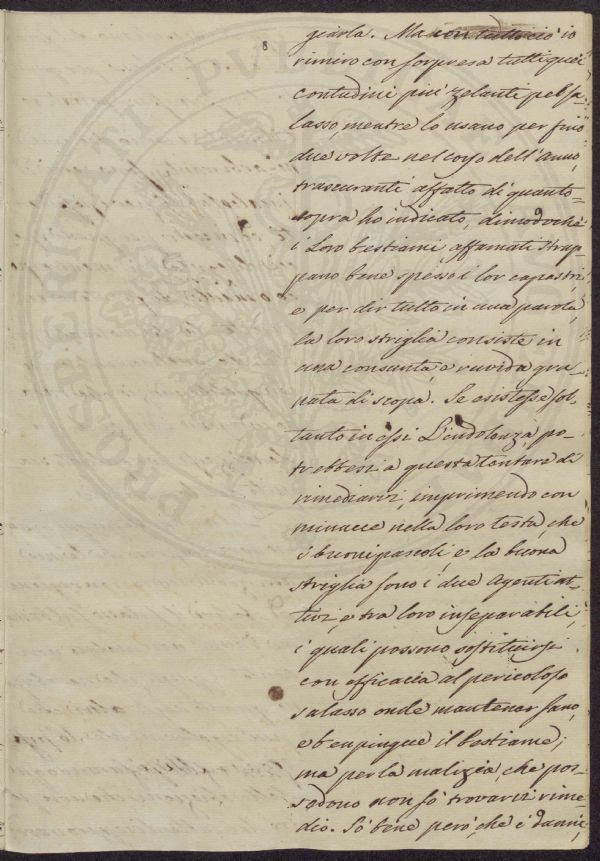 8
giarla. Ma con tuttociò io
rimiro con sorpresa tutti quei
contadini più zelanti pel sa-
lasso mentre lo usano per fino
due volte nel corso dell'anno,
trascuranti affatto di quanto
sopra ho indicato, dimodochè
i Loro bestiami affamati strap-
pano bene spesso i lor capestri,
e per dir tutto in una parola,
la loro striglia consiste in
una consunta, e ruvida gra-
nata di scopa. Se esistesse sol-
tanto in essi L'indolenza, po-
trebbesi a questa tentare di
rimediarvi, imprimendo con
minacce nella loro testa, che
i buoni pascoli, e la buona
striglia sono i due Agenti at-
tivi, e tra loro inseparabili,
i quali possono sostituirsi
con efficacia al pericoloso
salasso onde mantener sano,
e ben pingue il bestiame;
ma per la malizia, che pos-
sedono non sò trovarvi rime-
dio. Sò bene però, che i danni,
PROSPERITATI PUBLI